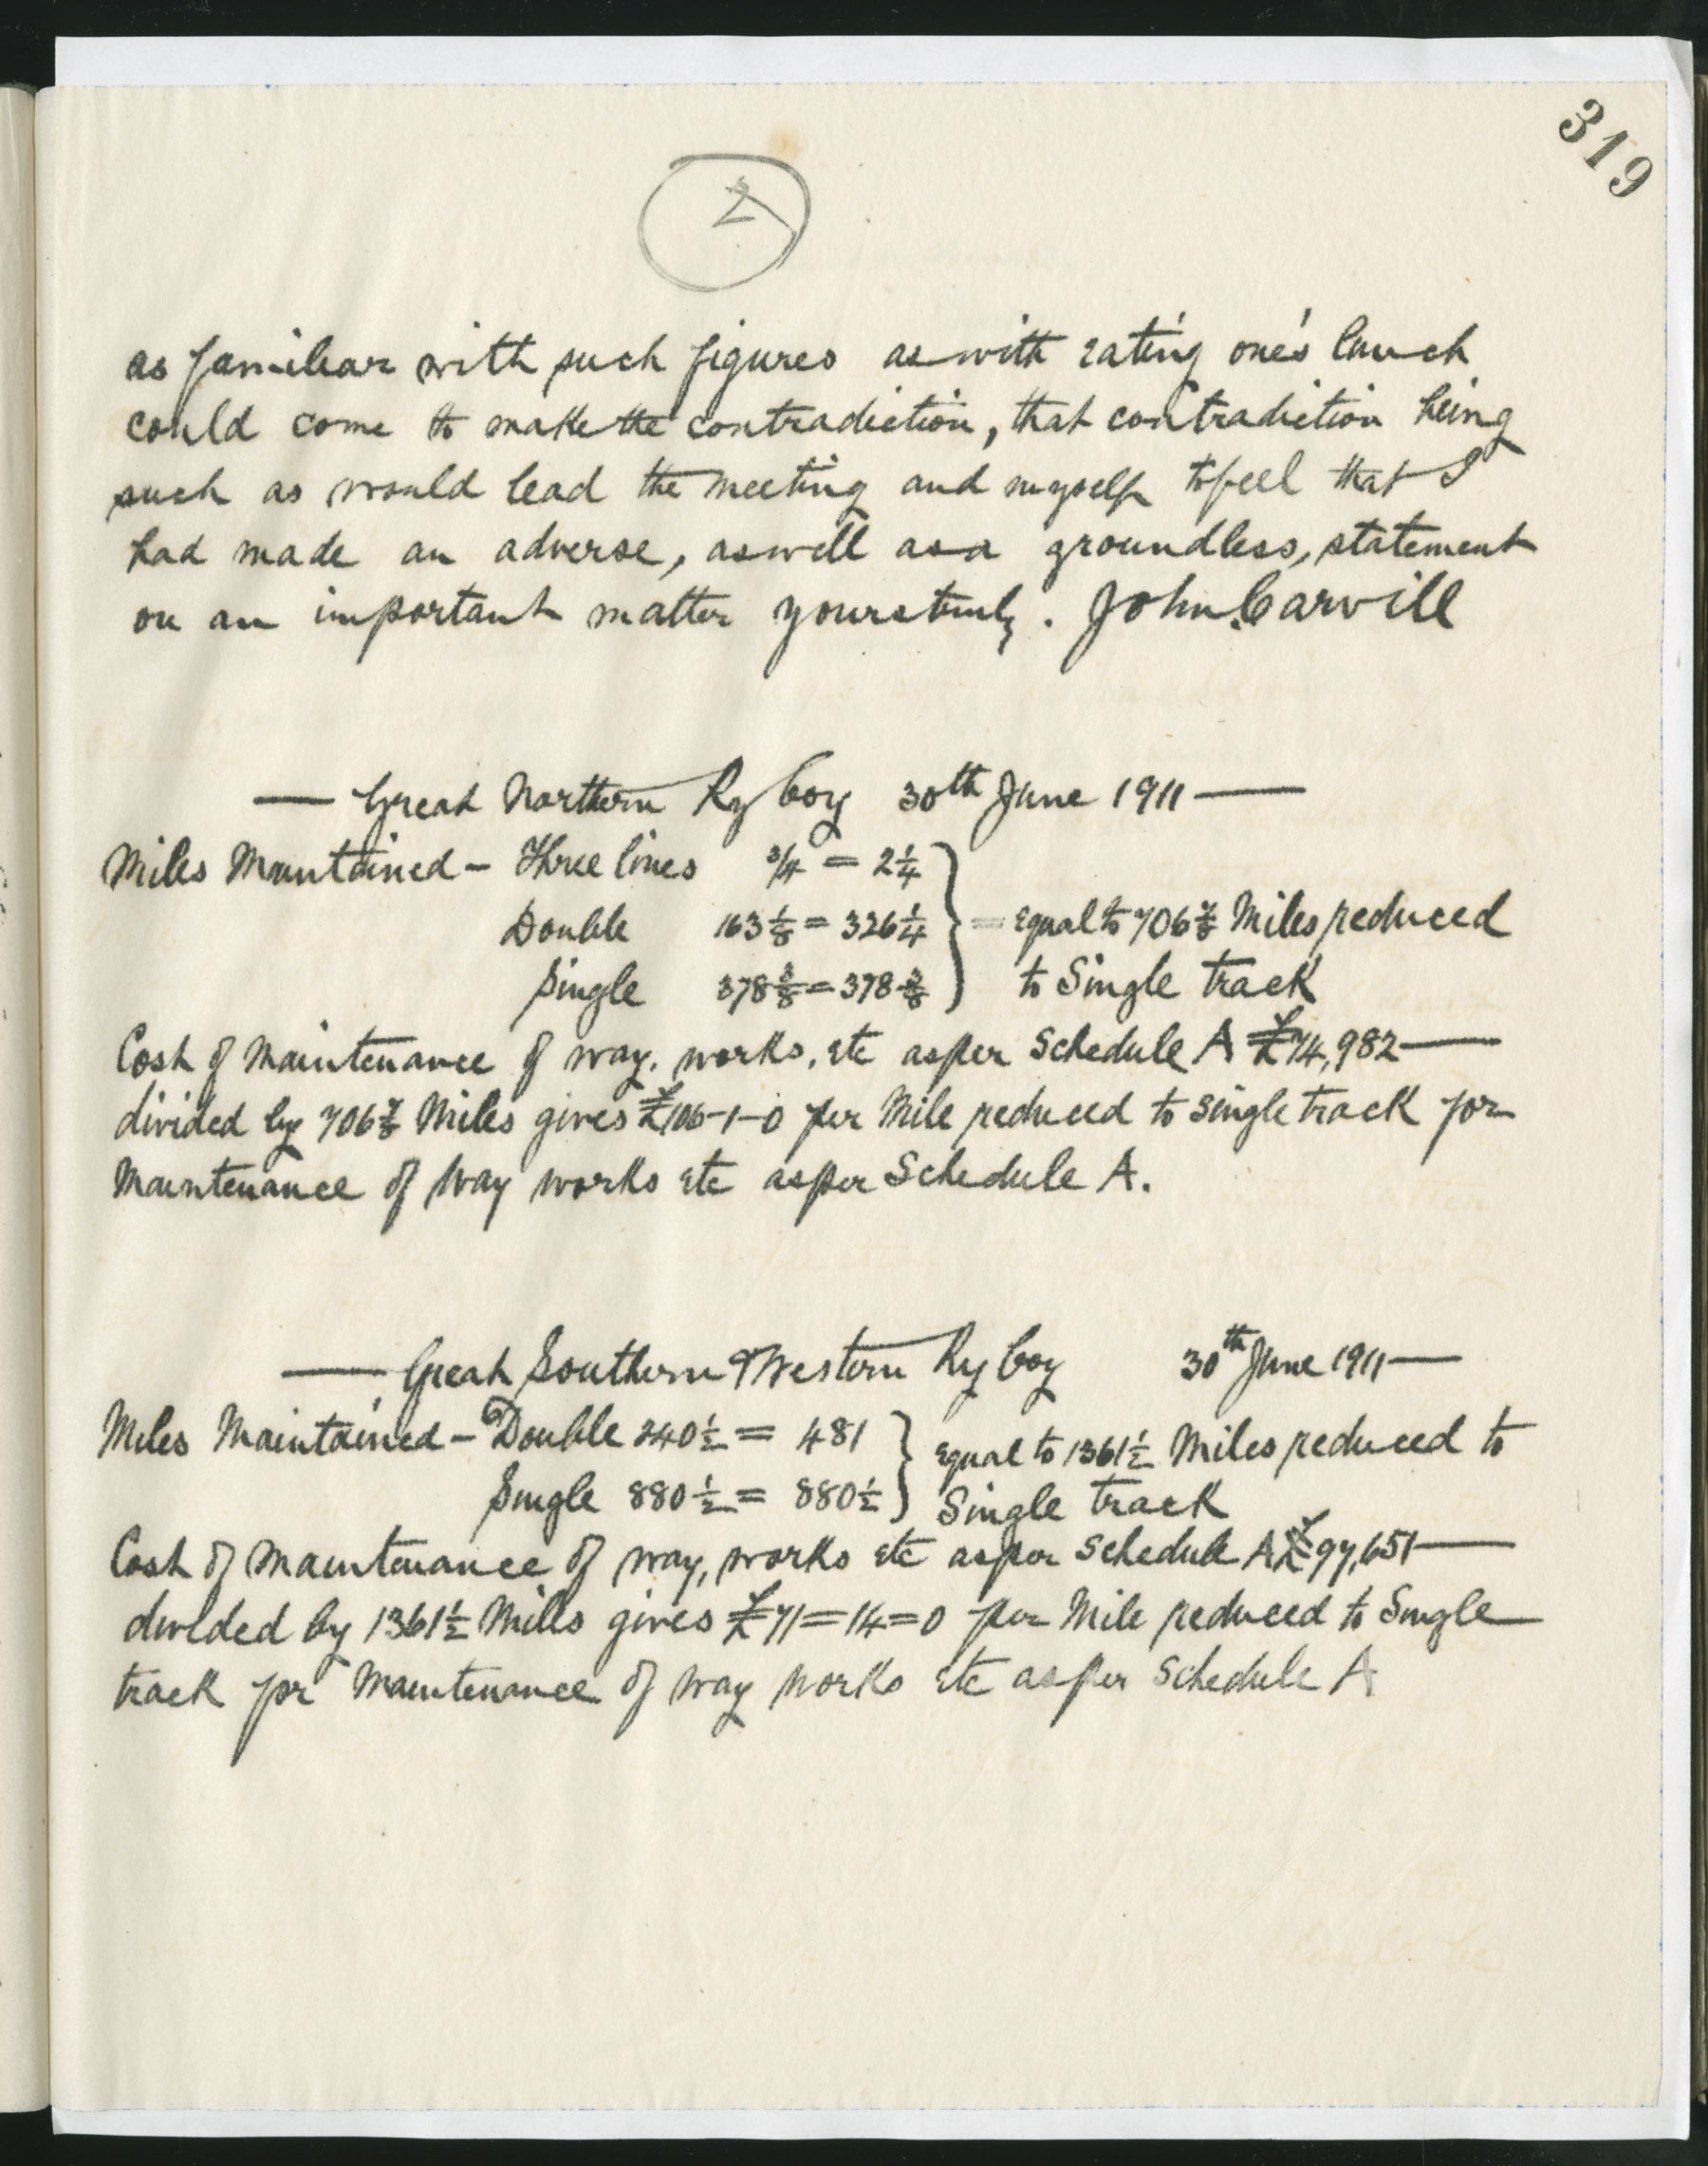 319
2
as familiar with such figures as with eating one's lunch
could come to make the contradiction, that contradiction being
such as would lead the meeting and myself to feel that I
had made an adverse, as well as a groundless, statement
on an important matter yours truly. John Carvill
— Great Northern Ry Coy 30th June 1911 —
Miles Maintained - Three lines 3/4 = 2 1/4
Double 163 1/8 = 326 1/4 = equal to 706 7/8 Miles reduced
Single 378 3/8 = 378 3/8 to Single track
Cost of Maintenance of way, works, etc as per Schedule A £74,982 —
divided by 706 7/8 Miles gives £106-1-0 per Mile reduced to single track for
Maintenance of Way works etc as per Schedule A.
— Great Southern & Western Ry Coy 30th June 1911 —
Miles Maintained - Double 240 1/2 = 481 equal to 1361 1/2 Miles reduced to
Single 880 1/2 = 880 1/2 Single track
Cost of Maintenance of way, works etc as per Schedule A £97,651 —
divided by 1361 1/2 Miles gives £71=14=0 per Mile reduced to Single
track for Maintenance of way works etc as per Schedule A